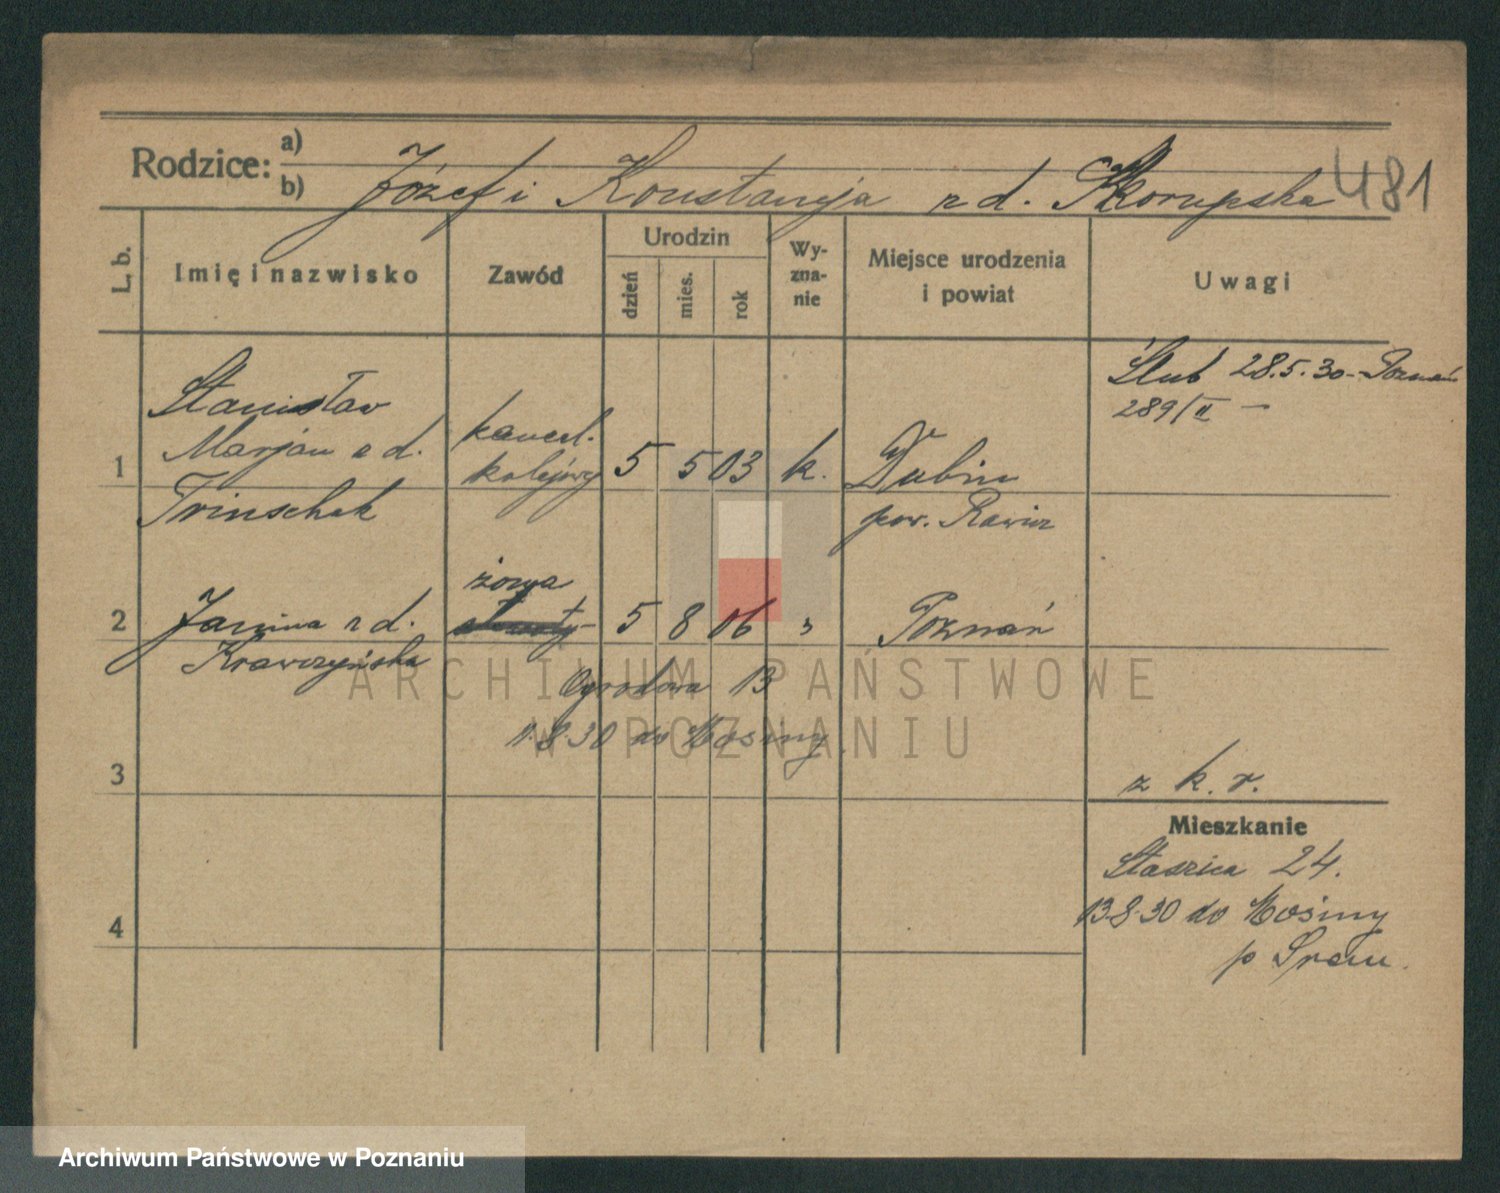 Rodzice:
a)
b) Józef i Konstancja z d. Skorupska
481
L. b.
Imię i nazwisko
Zawód
Urodzin
dzień
mies.
rok
Wy-
zna-
nie
Miejsce urodzenia
i powiat
Uwagi
Ślub 28.5.30 - Poznań
289/II -
1
Stanisław
Marjan z d.
Trinschek
kancel.
kolejowy
5 5 03 k.
Dubin
pow. Rawicz
2
Janina z d.
Krawczyńska
żona
5 8 06 "
Poznań
Ogrodowa 13
11.8.30 do Mosiny
3
z k. r.
Mieszkanie
Staszica 24.
13.8.30 do Mosiny
p Śrem.
4
ARCHIWUM PAŃSTWOWE
W POZNANIU
Archiwum Państwowe w Poznaniu